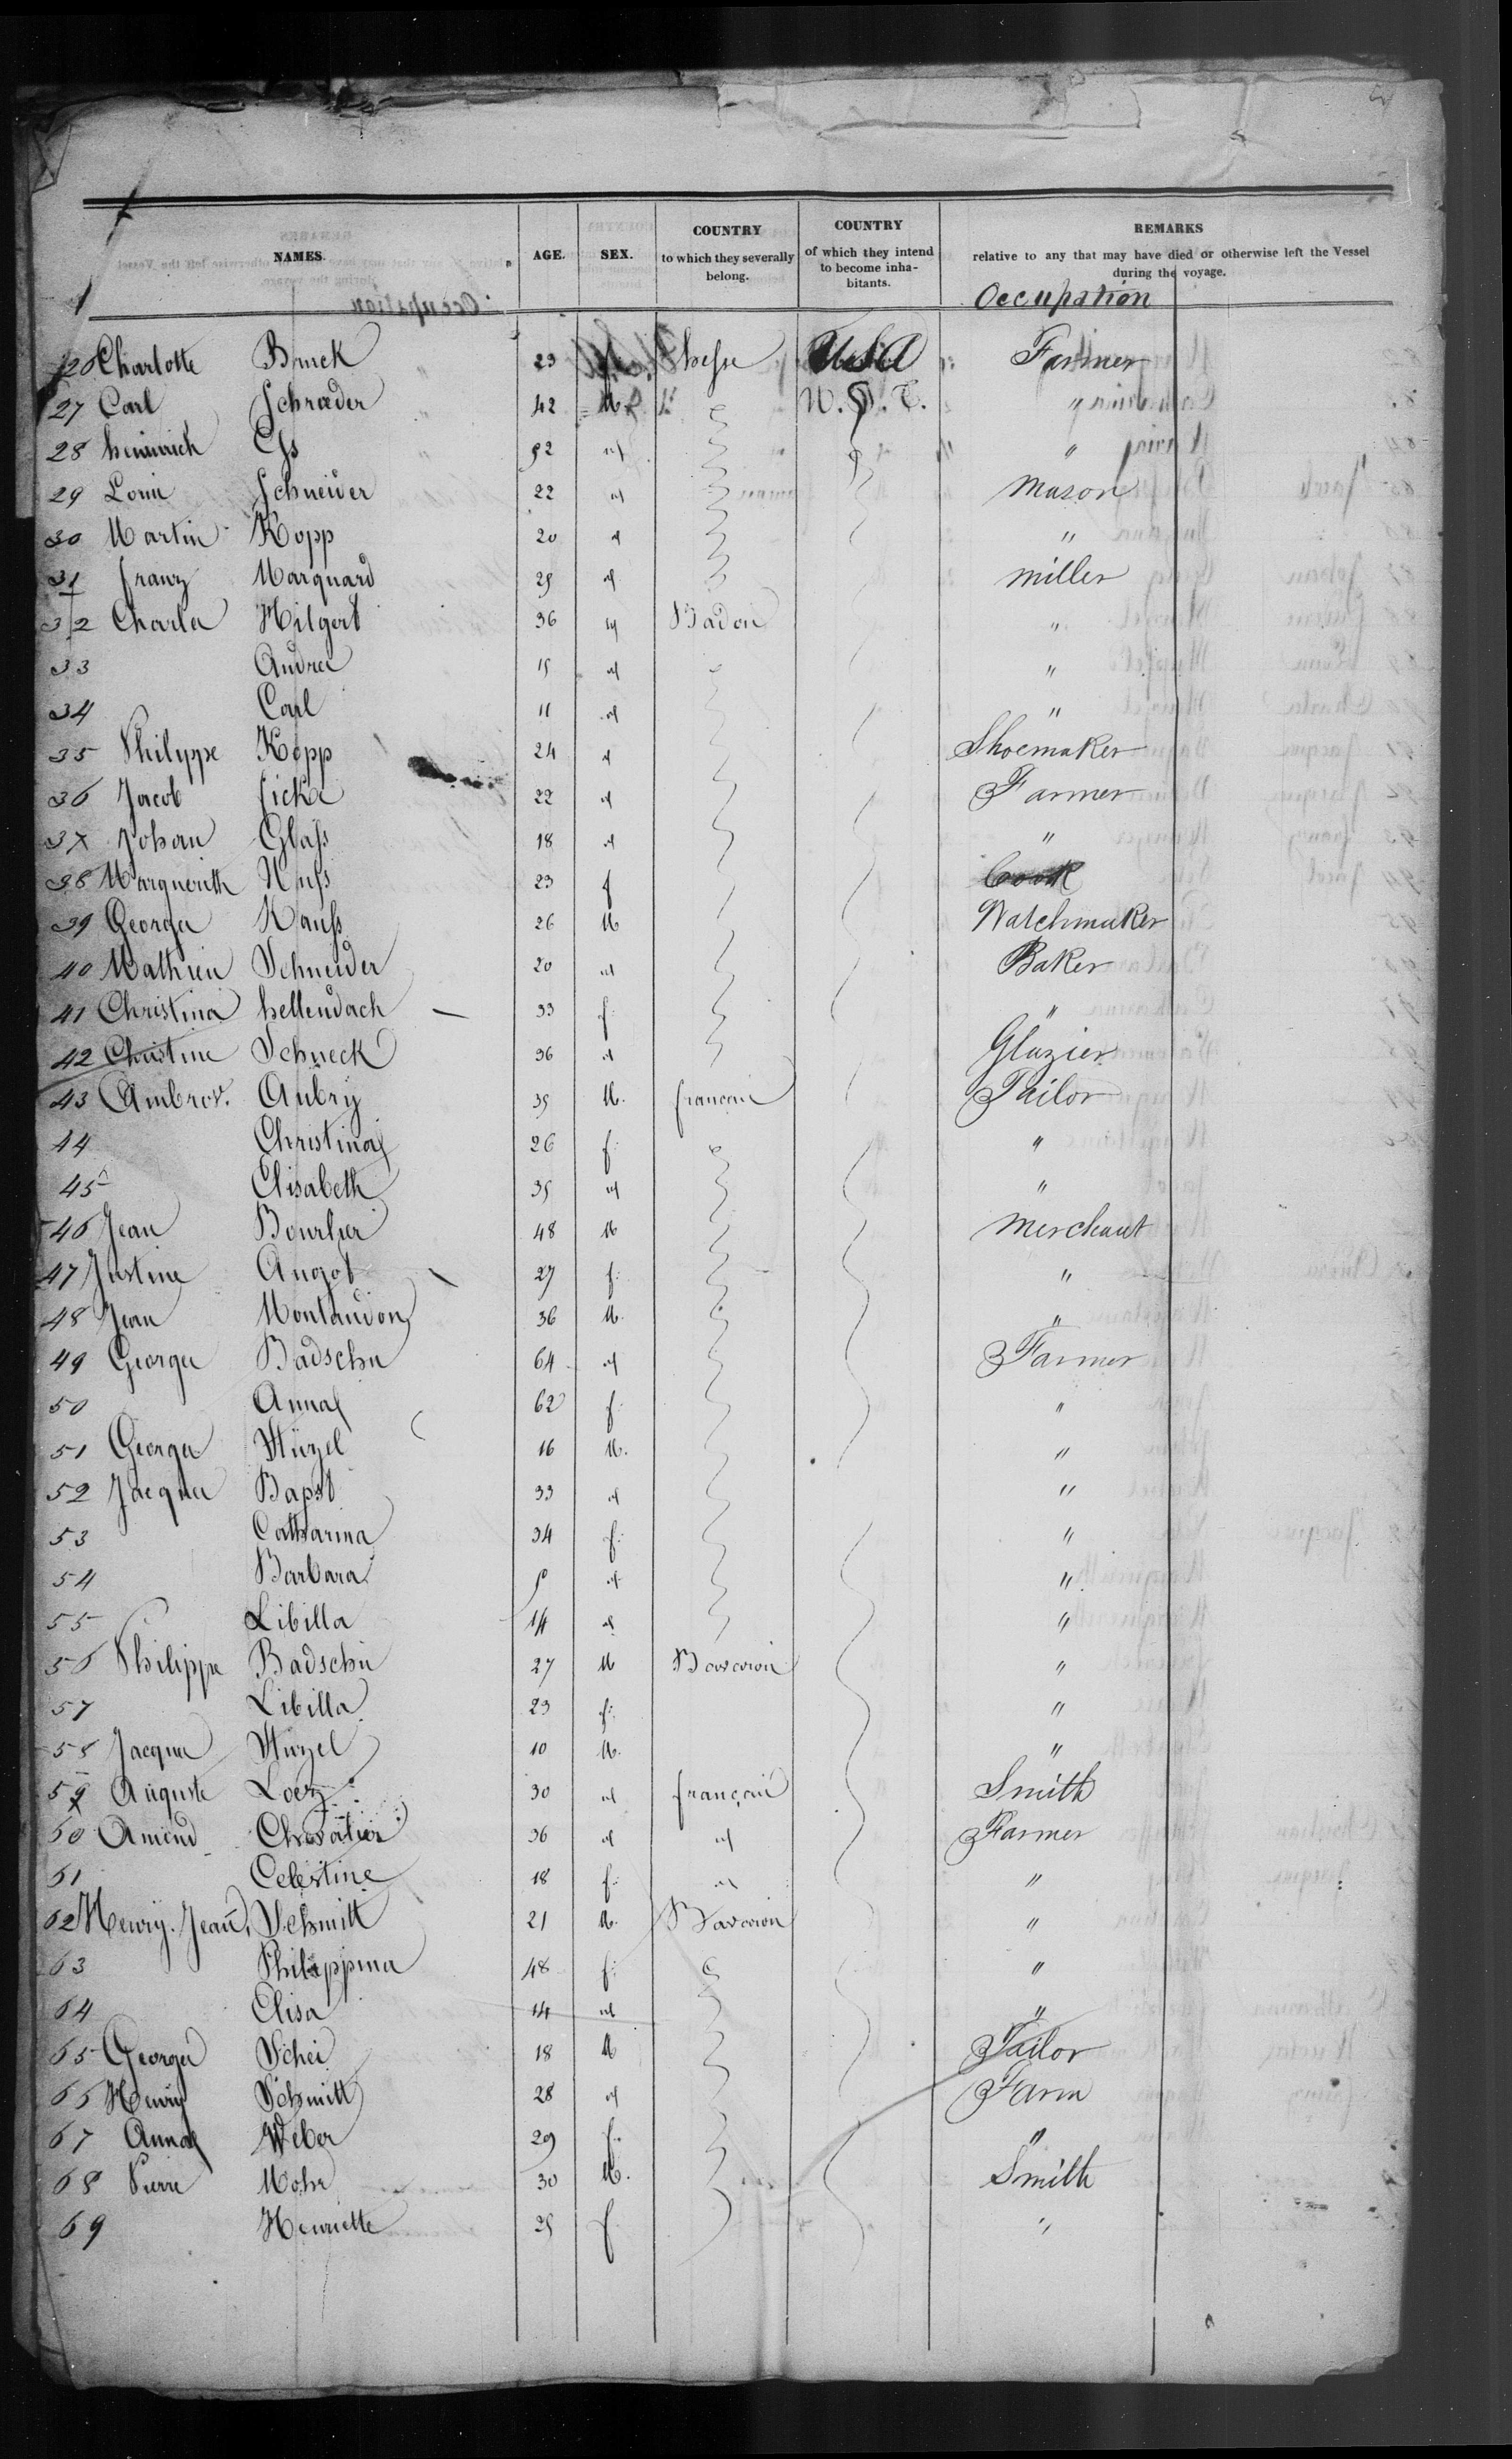 NAMES. AGE. SEX. COUNTRY to which they severally belong. COUNTRY of which they intend to become inhabitants. REMARKS relative to any that may have died or otherwise left the Vessel during the voyage.
Occupation
26 Charlotte Bruck 23 f. hesse USA Farmer
27 Carl Schræder 42 M. "
28 heinrich 52 " "
29 Schneider 22 " Mason
30 Martin Kopp 20 " "
31 franz Marquard 25 " miller
32 Charles Hilgert 36 " Baden "
33 Andrea 15 " "
34 Carl 11 " "
35 Philippe Kopp 24 " Shoemaker
36 Jacob ficka 22 " Farmer
37 Johan Glass 18 " "
38 Marguerith Nuss 23 f Cook
39 George Nauss 26 M Watchmaker
40 Mathieu Schneider 20 " Baker
41 Christina hellendach — 33 f. "
42 Christine Schneck 36 " Glazier
43 Ambros. Aubry 35 M. francais Tailor
44 Christina 26 f. "
45 Elisabeth 35 " "
46 Jean Bourlier 48 M Merchant
47 Justine Angot 27 f. "
48 Jean Montandon 36 M. "
49 George Badschu 64 " Farmer
50 Anna 62 f. "
51 George Stüzel 16 M. "
52 Jacques Bapst 33 " "
53 Catharina 34 f. "
54 Barbara " "
55 Libilla 14 " "
56 Philippe Badschu 27 M "
57 Libilla 23 f. "
58 Jacques Stüzel 10 M. "
59 Auguste Loez 30 " français Smith
60 Amend Chevatier 36 " " Farmer
61 Celestine 18 f. " "
62 Henry. Jean. Schmitt 21 M. "
63 Philippina 48 f. "
64 Elisa 14 " "
65 George Schei 18 M Tailor
66 Henry Schmitt 28 " Farm
67 Anna Weber 29 f. "
68 Pierre Mohr 30 M. Smith
69 Henriette 25 f "